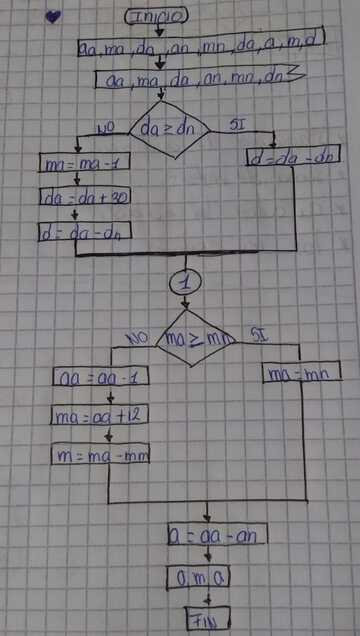 INICIO
aa, ma, da, an, mn, da, a, m, d
aa, ma, da, an, mn, dn
da ≥ dn
NO
SI
ma = ma - 1
d = da - dn
da = da + 30
d = da - dn
1
ma ≥ mn
NO
SI
aa = aa - 1
ma = mn
ma = aa + 12
m = ma - mm
a = aa - an
a, m, a
FIN